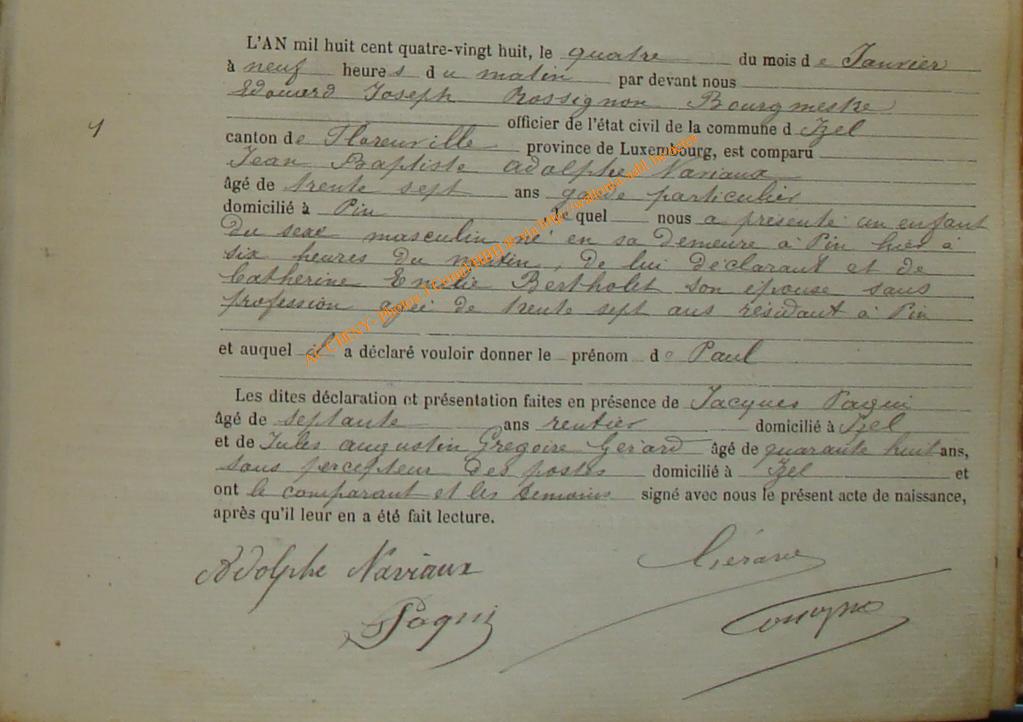 L'AN mil huit cent quatre-vingt huit, le quatre du mois de Janvier
à neuf heures du matin par devant nous
Edouard Joseph Rossignon Bourgmestre
1
officier de l'état civil de la commune d Izel
canton de Florenville province de Luxembourg, est comparu
Jean Baptiste Adolphe Naviaux
âgé de trente sept ans garde particulier
domicilié à Pin le quel nous a présenté un enfant
du sexe masculin né en sa demeure à Pin hier à
six heures du matin, de lui déclarant et de
Catherine Emelie Bertholet son épouse sans
profession agée de trente sept ans résidant à Pin
et auquel il a déclaré vouloir donner le prénom de Paul
Les dites déclaration et présentation faites en présence de Jacques Paqui
âgé de septante ans rentier domicilié à Izel
et de Jules augustin Gregoire Gerard âgé de quarante huit ans,
sous percepteur des postes domicilié à Izel et
ont le comparant et les témoins signé avec nous le présent acte de naissance,
après qu'il leur en a été fait lecture.
Adolphe Naviaux
Gérard
Paqui